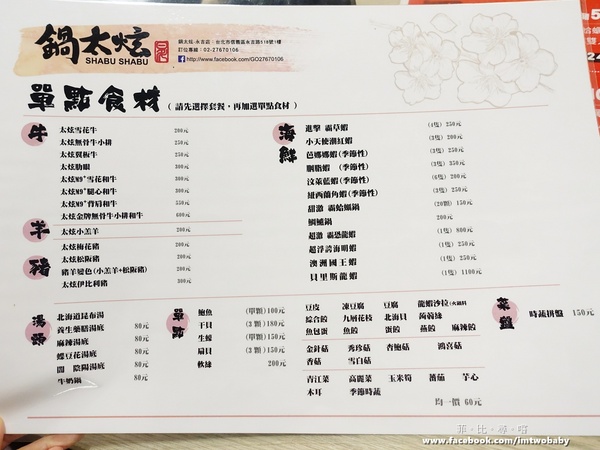 鍋太炫
SHABU SHABU
鍋太炫-永吉店：台北市信義區永吉路519號1樓
訂位專線：02-27670106
http://www.facebook.com/GO27670106
單點食材（請先選擇套餐，再加選單點食材）
牛
太炫雪花牛 200元
太炫無骨牛小排 250元
太炫翼板牛 250元
太炫肋眼 300元
太炫M9+雪花和牛 380元
太炫M9+腿心和牛 380元
太炫M9+背肩和牛 550元
太炫金牌無骨牛小排和牛 600元
羊
太炫小羔羊 200元
豬
太炫梅花豬 200元
太炫松阪豬 200元
豬羊變色(小羔羊+松阪豬) 200元
太炫伊比利豬 300元
海鮮
進擊 霸草蝦 (1隻) 250元
小天使潮紅蝦 (3隻) 200元
芭娜娜蝦(季節性) (3隻) 250元
胭脂蝦 (季節性) (3隻) 350元
汶萊藍蝦 (季節性) (6隻) 200元
紐西蘭角蝦(季節性) (3隻) 250元
甜激 霸蛤蠣鍋 (20顆) 150元
鯛魚鍋 200元
超激 霸恐龍蝦 (1隻) 800元
超浮誇海明蝦 (1隻) 250元
澳洲國王蝦 (1隻) 250元
貝里斯龍蝦 (1隻) 1100元
湯頭
北海道昆布湯
養生藥膳湯底 80元
麻辣湯底 80元
蝶豆花湯底 80元
閤 陰陽湯底 80元
牛奶鍋 80元
單點
鮑魚 (單顆)100元
干貝 (3顆)180元
生蠔 (單顆)150元
扇貝 (3顆)150元
軟絲 200元
豆皮 凍豆腐 豆腐 龍蝦沙拉(火鍋料)
綜合餃 九層花枝 北海貝 蒟蒻絲
魚包蛋 魚餃 蛋餃 燕餃 麻辣餃
金針菇 秀珍菇 杏鮑菇 鴻喜菇
香菇 雪白菇
青江菜 高麗菜 玉米筍 蕃茄 芋心
木耳 季節時蔬
均一價 60元
菜盤
時蔬拼盤 150元
菲‧比‧尋‧嚐
www.facebook.com/imtwobaby